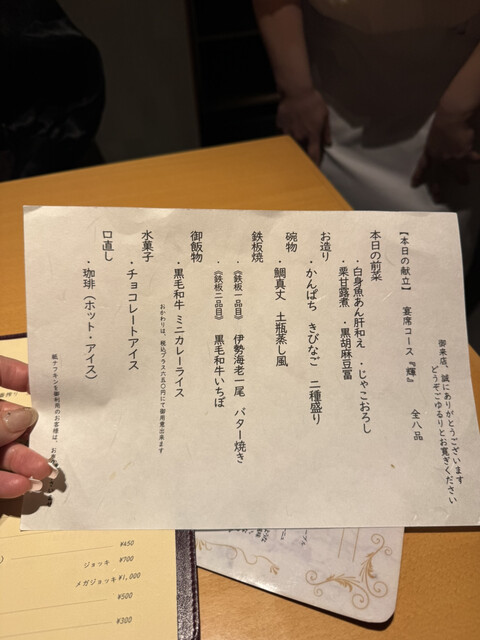 御来店、誠にありがとうございます
どうぞごゆるりとお寛ぎください
【本日の献立】 宴席コース『輝』 全八品
本日の前菜
・白身魚あん肝和え ・じゃこおろし
・栗甘露煮 ・黒胡麻豆冨
お造り
・かんぱち きびなご 二種盛り
碗物
・鯛真丈 土瓶蒸し風
鉄板焼
・《鉄板一品目》 伊勢海老一尾 バター焼き
・《鉄板二品目》 黒毛和牛いちぼ
御飯物
・黒毛和牛 ミニカレーライス
おかわりは、税込プラス六五〇円にて御用意出来ます
水菓子
・チョコレートアイス
口直し
・珈琲(ホット・アイス)
紙ナフキンを御利用のお客様は、お
¥450
ジョッキ ¥700
メガジョッキ ¥1,000
¥500
¥300